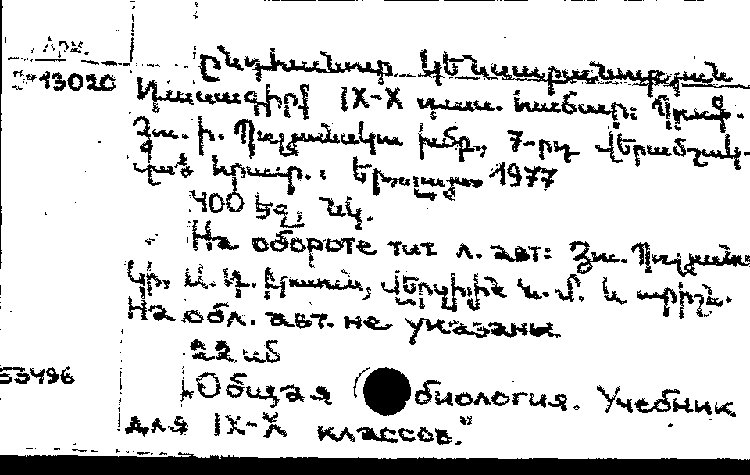 Арм.
13020
Ընդհանուր կենսաբանության
Դասագիրք IX-X դաս. համար: Պրոֆ.
Յու. ի. Պոլյանսկու խմբ., 7-րդ վերամշակ-
ված հրատ.: Երևան 1977
400 եջ, նկ.
На обороте тит л. авт: Յու. Պոլյանս
կի, Ա. Դ.
На обл. авт. не указаны.
53496
"Общая биология. Учебник
для IX-X классов."